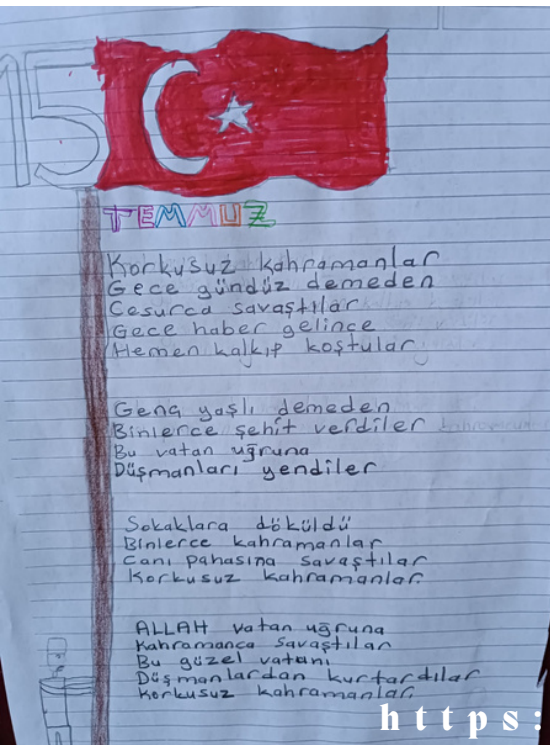 15
TEMMUZ
Korkusuz kahramanlar
Gece gündüz demeden
Cesurca savaştılar
Gece haber gelince
Hemen kalkıp koştular
Genç yaşlı demeden
Binlerce şehit verdiler
Bu vatan uğruna
Düşmanları yendiler
Sokaklara döküldü
Binlerce kahramanlar
Canı pahasına savaştılar
Korkusuz kahramanlar
ALLAH vatan uğruna
Kahramanca savaştılar
Bu güzel vatanı
Düşmanlardan kurtardılar
Korkusuz kahramanlar
https: